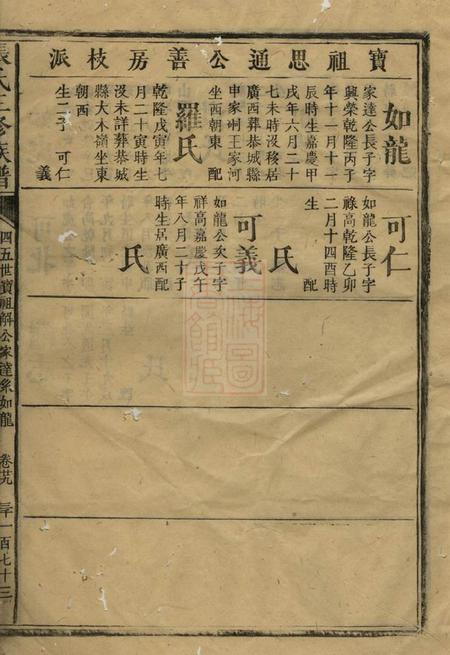 寶祖思通公善房枝派
如龍
家達公長子字
興榮乾隆丙子
年十一月十一
辰時生嘉慶甲
戌年六月二十
七未時沒移居
廣西葬恭城縣
申家峒王家河
坐西朝東 配
羅氏
乾隆戊寅年七
月二十寅時生
沒未詳葬恭城
縣大木嶺坐東
朝西
生二子 可仁
義
可仁
如龍公長子字
祿高乾隆乙卯
二月十四酉時
生 配
氏
可義
如龍公次子字
祥高嘉慶戊午
年八月二十子
時生居廣西配
氏
張氏三修族譜
四五世寶祖解公家達象如龍
卷廿九
三千一百七十三